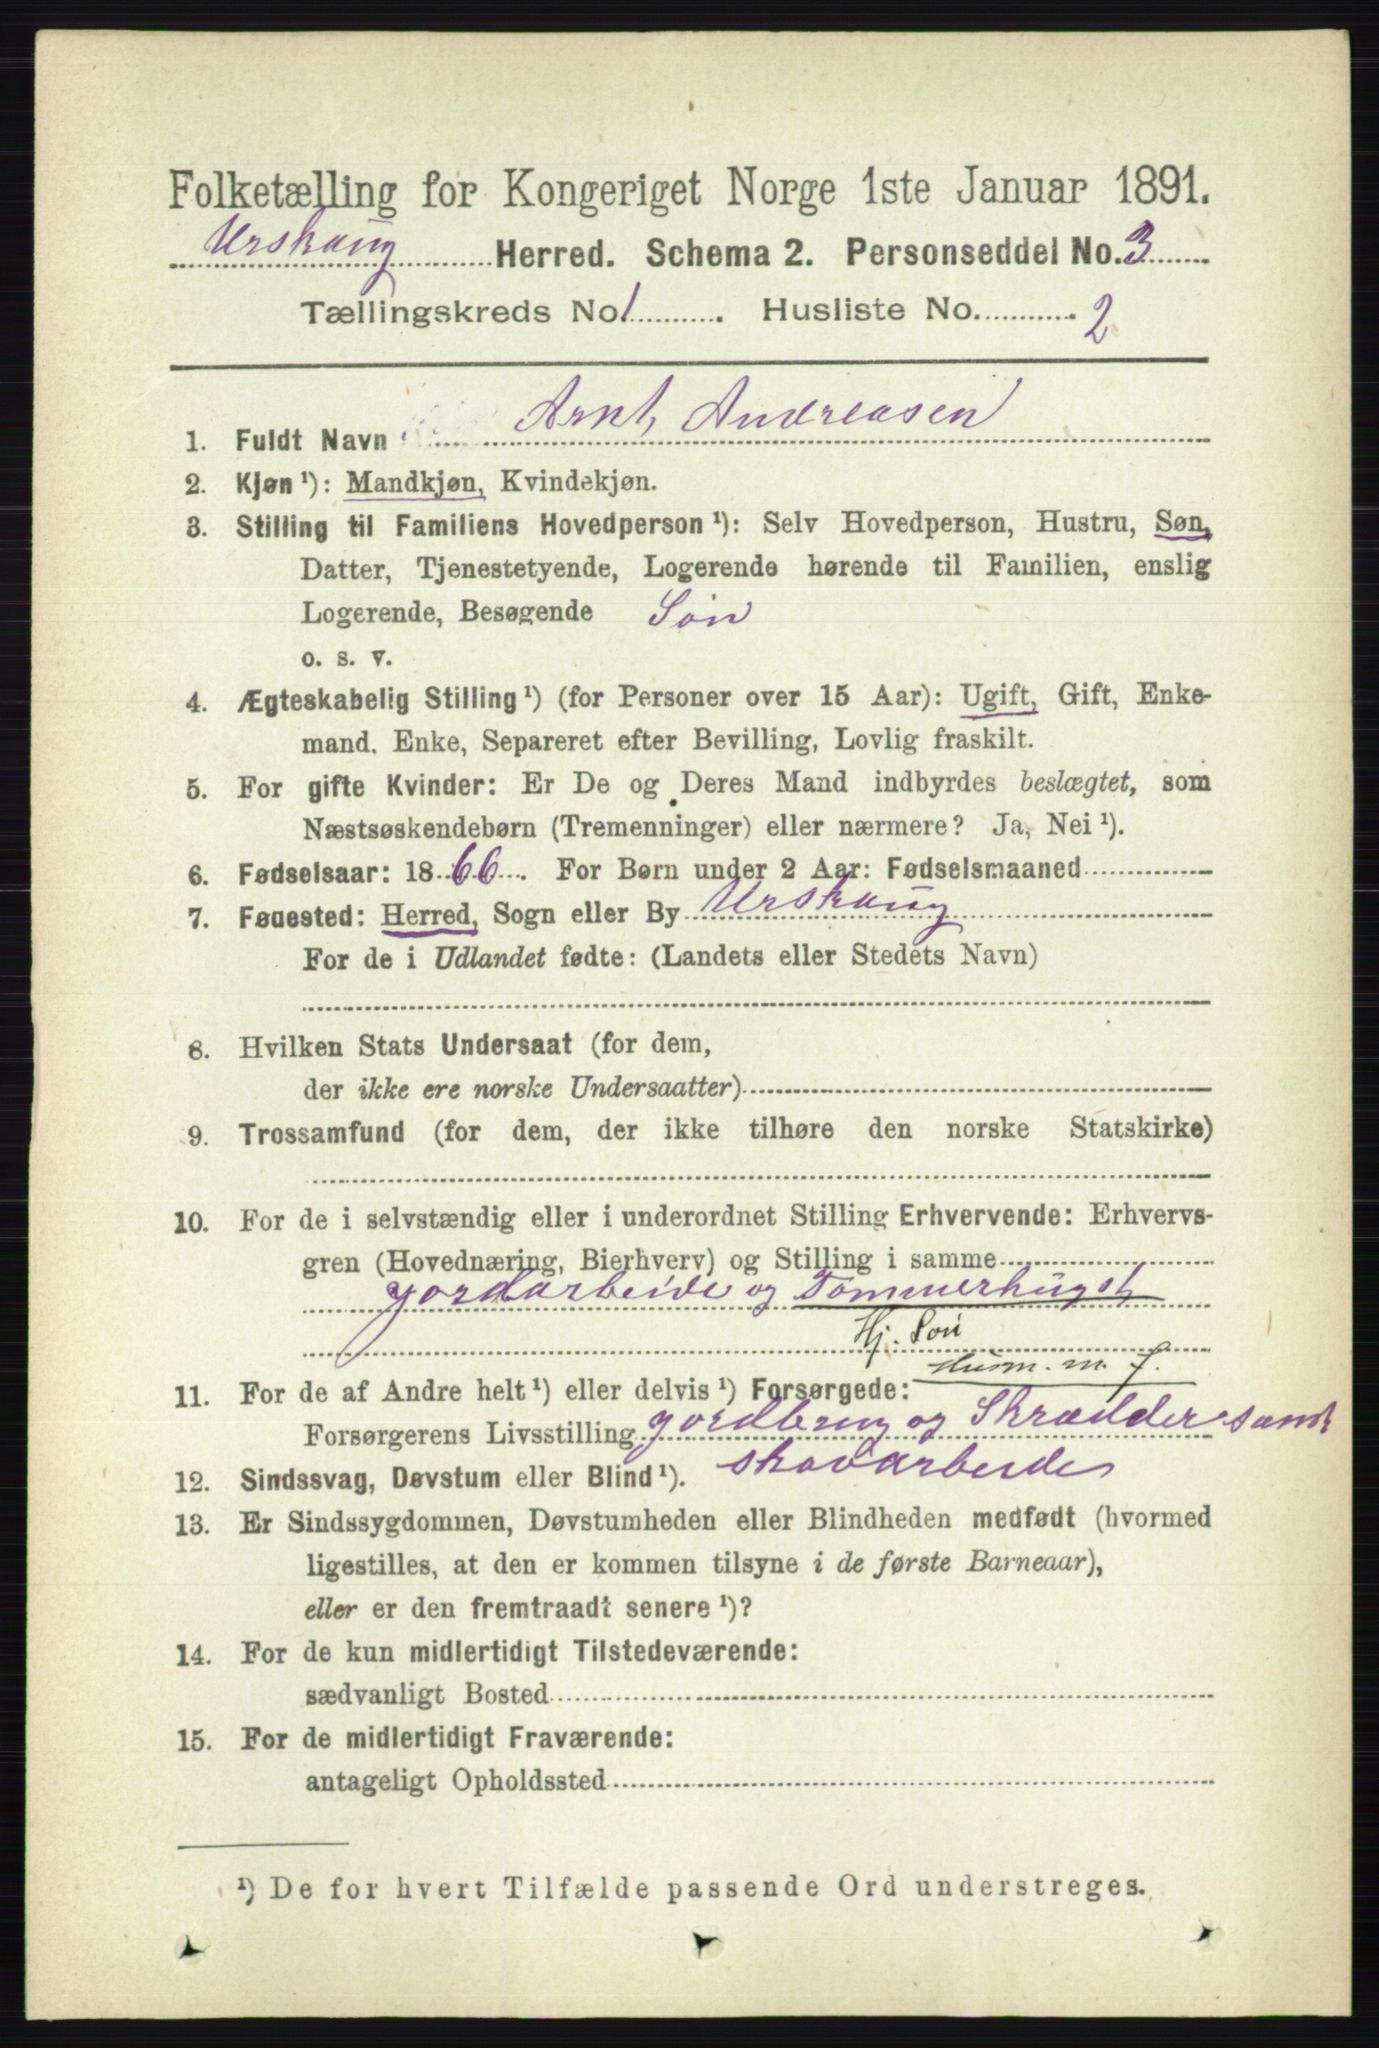 Folketælling for Kongeriget Norge 1ste Januar 1891.
Urskaug Herred. Schema 2. Personseddel No. 3
Tællingskreds No 1. Husliste No. 2
1. Fuldt Navn Arnt Andreasen
2. Kjøn¹): Mandkjøn, Kvindekjøn.
3. Stilling til Familiens Hovedperson¹): Selv Hovedperson, Hustru, Søn,
Datter, Tjenestetyende, Logerende hørende til Familien, enslig
Logerende, Besøgende Søn
o. s. v.
4. Ægteskabelig Stilling¹) (for Personer over 15 Aar): Ugift, Gift, Enke-
mand, Enke, Separeret efter Bevilling, Lovlig fraskilt.
5. For gifte Kvinder: Er De og Deres Mand indbyrdes beslægtet, som
Næstsøskendebørn (Tremenninger) eller nærmere? Ja, Nei¹).
6. Fødselsaar: 1866. For Børn under 2 Aar: Fødselsmaaned
7. Fødested: Herred, Sogn eller By Urskaug
For de i Udlandet fødte: (Landets eller Stedets Navn)
8. Hvilken Stats Undersaat (for dem,
der ikke ere norske Undersaatter)
9. Trossamfund (for dem, der ikke tilhøre den norske Statskirke)
10. For de i selvstændig eller i underordnet Stilling Erhvervende: Erhvervs-
gren (Hovednæring, Bierhverv) og Stilling i samme
gordarbeide og Tømmerhugst
Hj. Søn
Husm. m. J.
11. For de af Andre helt¹) eller delvis¹) Forsørgede:
Forsørgerens Livsstilling gordbrug og Skrædder samt
skovarbeide
12. Sindssvag, Døvstum eller Blind¹).
13. Er Sindssygdommen, Døvstumheden eller Blindheden medfødt (hvormed
ligestilles, at den er kommen tilsyne i de første Barneaar),
eller er den fremtraadt senere¹)?
14. For de kun midlertidigt Tilstedeværende:
sædvanligt Bosted
15. For de midlertidigt Fraværende:
antageligt Opholdssted
¹) De for hvert Tilfælde passende Ord understreges.